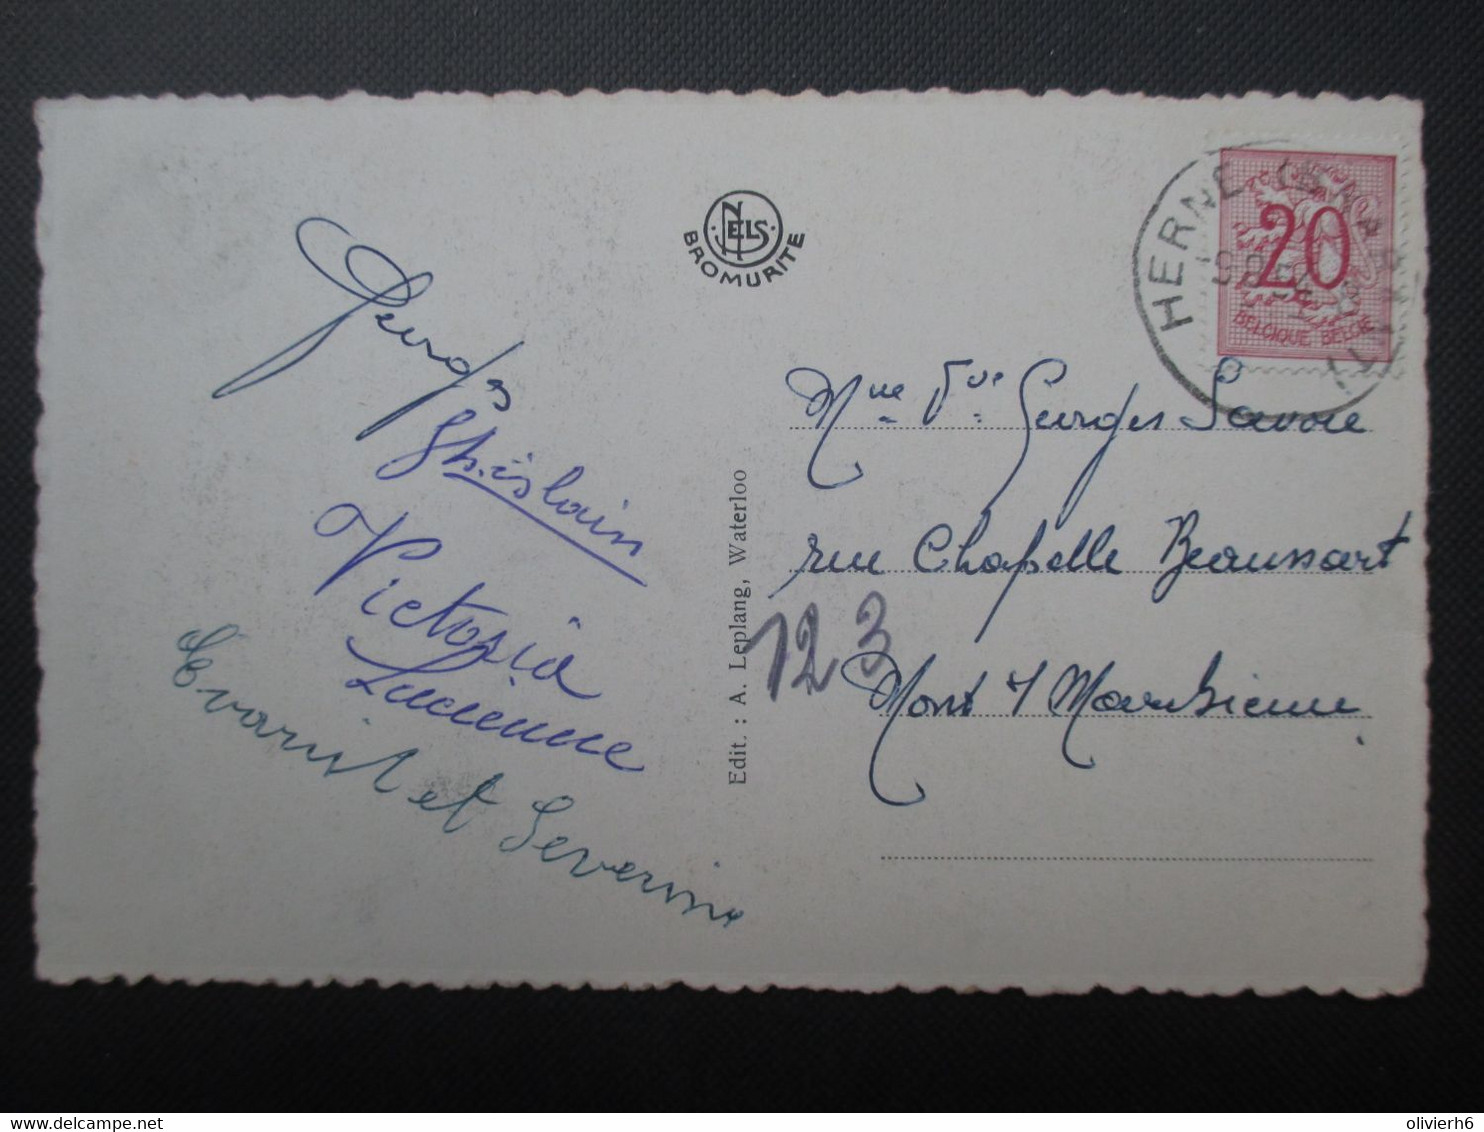 NELS
BROMURITE
HERNE
20
BELGIQUE BELGIË
Georges
Ghislain
Victoria
Lucienne
Evarist et Severine
Edit. : A. Leplang, Waterloo
Mme Vve Georges Savoie
rue Chapelle Beaussart
123
Mont s/ Marchienne
delcampe.net
olivierh6